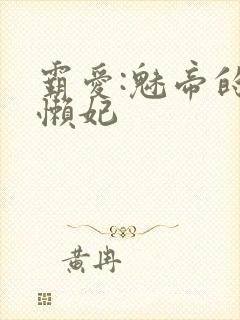 霸爱:魅帝的
懒妃
黄冉